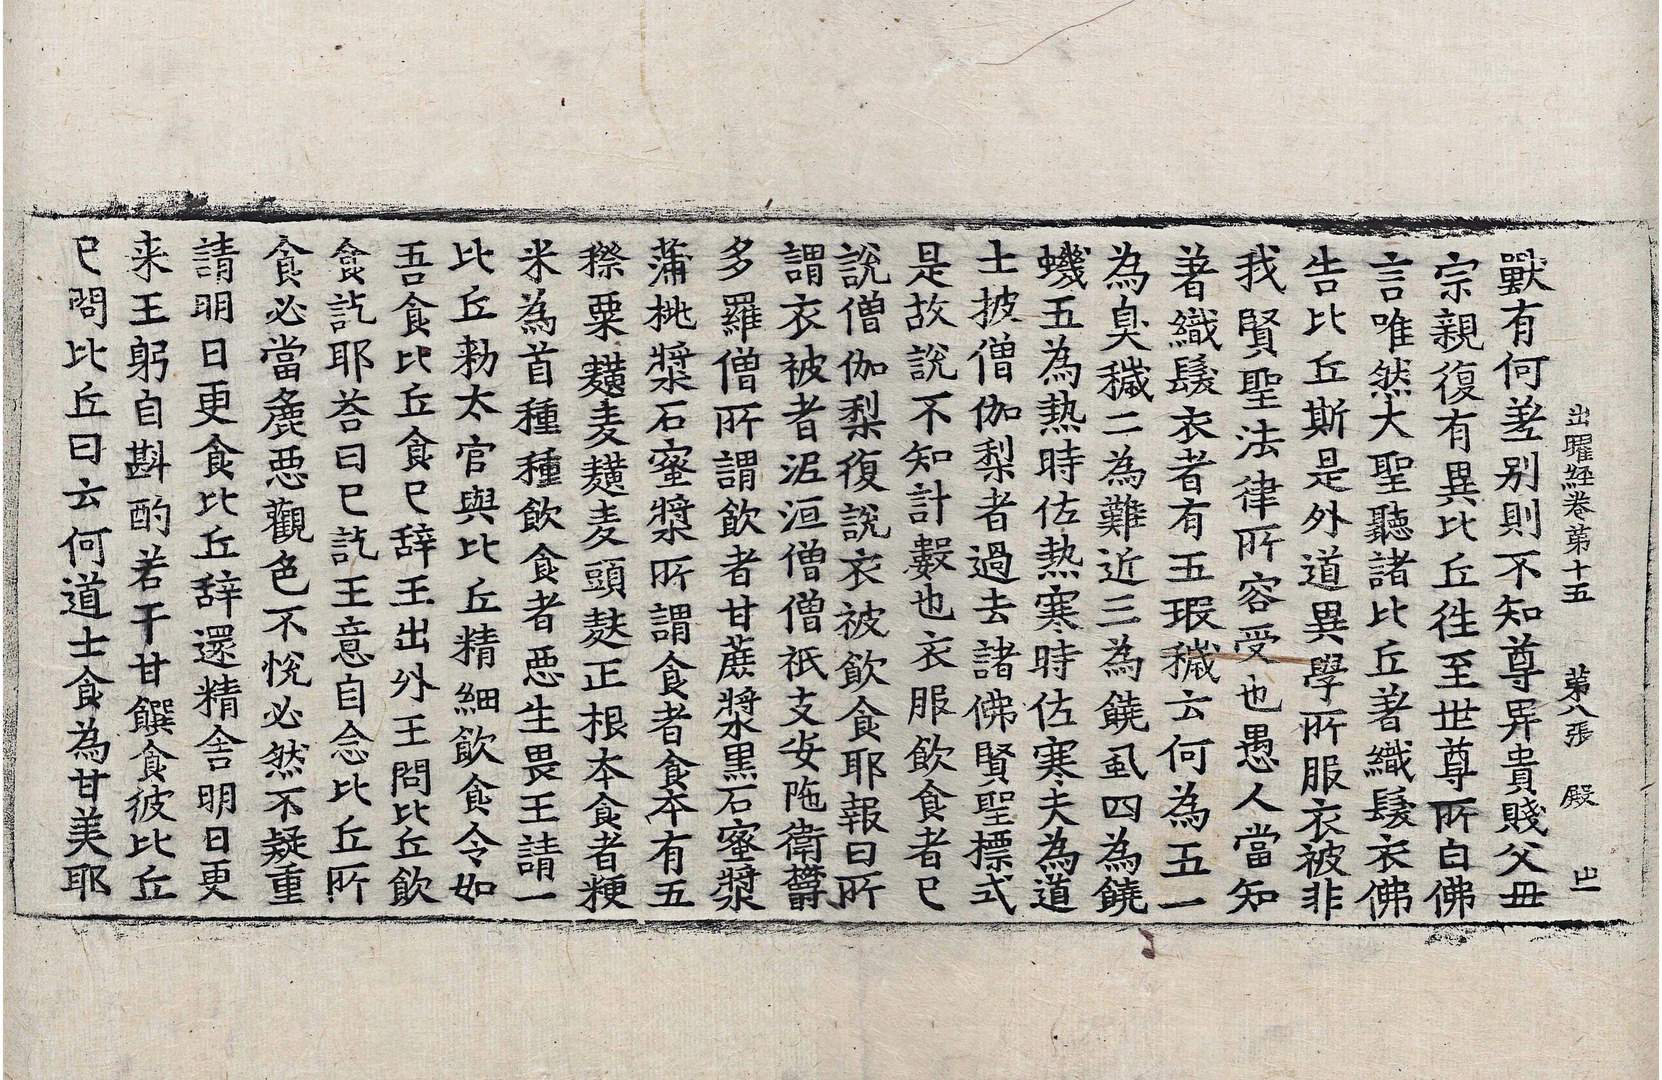 出曜經卷苐十五 苐八張 殿 出
獸有何差别則不知尊畀貴賤父毋
宗親復有異比丘徃至世尊所白佛
言唯然大聖聽諸比丘著織髮衣佛
告比丘斯是外道異學所服衣被非
我賢聖法律所容受也愚人當知
著織髮衣者有五瑕穢云何為五一
為臭穢二為難近三為饒虱四為饒
蟣五為熱時佐熱寒時佐寒夫為道
士披僧伽梨者過去諸佛賢聖標式
是故說不知計數也衣服飲食者已
說僧伽梨復說衣被飲食耶報曰所
謂衣被者泥洹僧僧祇支安陁衛欝
多羅僧所謂飲者甘蔗漿黒石蜜漿
蒲桃漿石蜜漿所謂食者食本有五
穄粟䵃麦䵃麦頭麨正根本食者粳
米為首種種飲食者惡生畏王請一
比丘勑太官與比丘精細飲食令如
吾食比丘食已辞王出外王問比丘飲
食訖耶荅曰已訖王意自念比丘所
食必當麁惡觀色不悅必然不疑重
請明日更食比丘辞還精舍明日更
来王躬自斟酌若干甘饌食彼比丘
已問比丘曰云何道士食為甘美耶